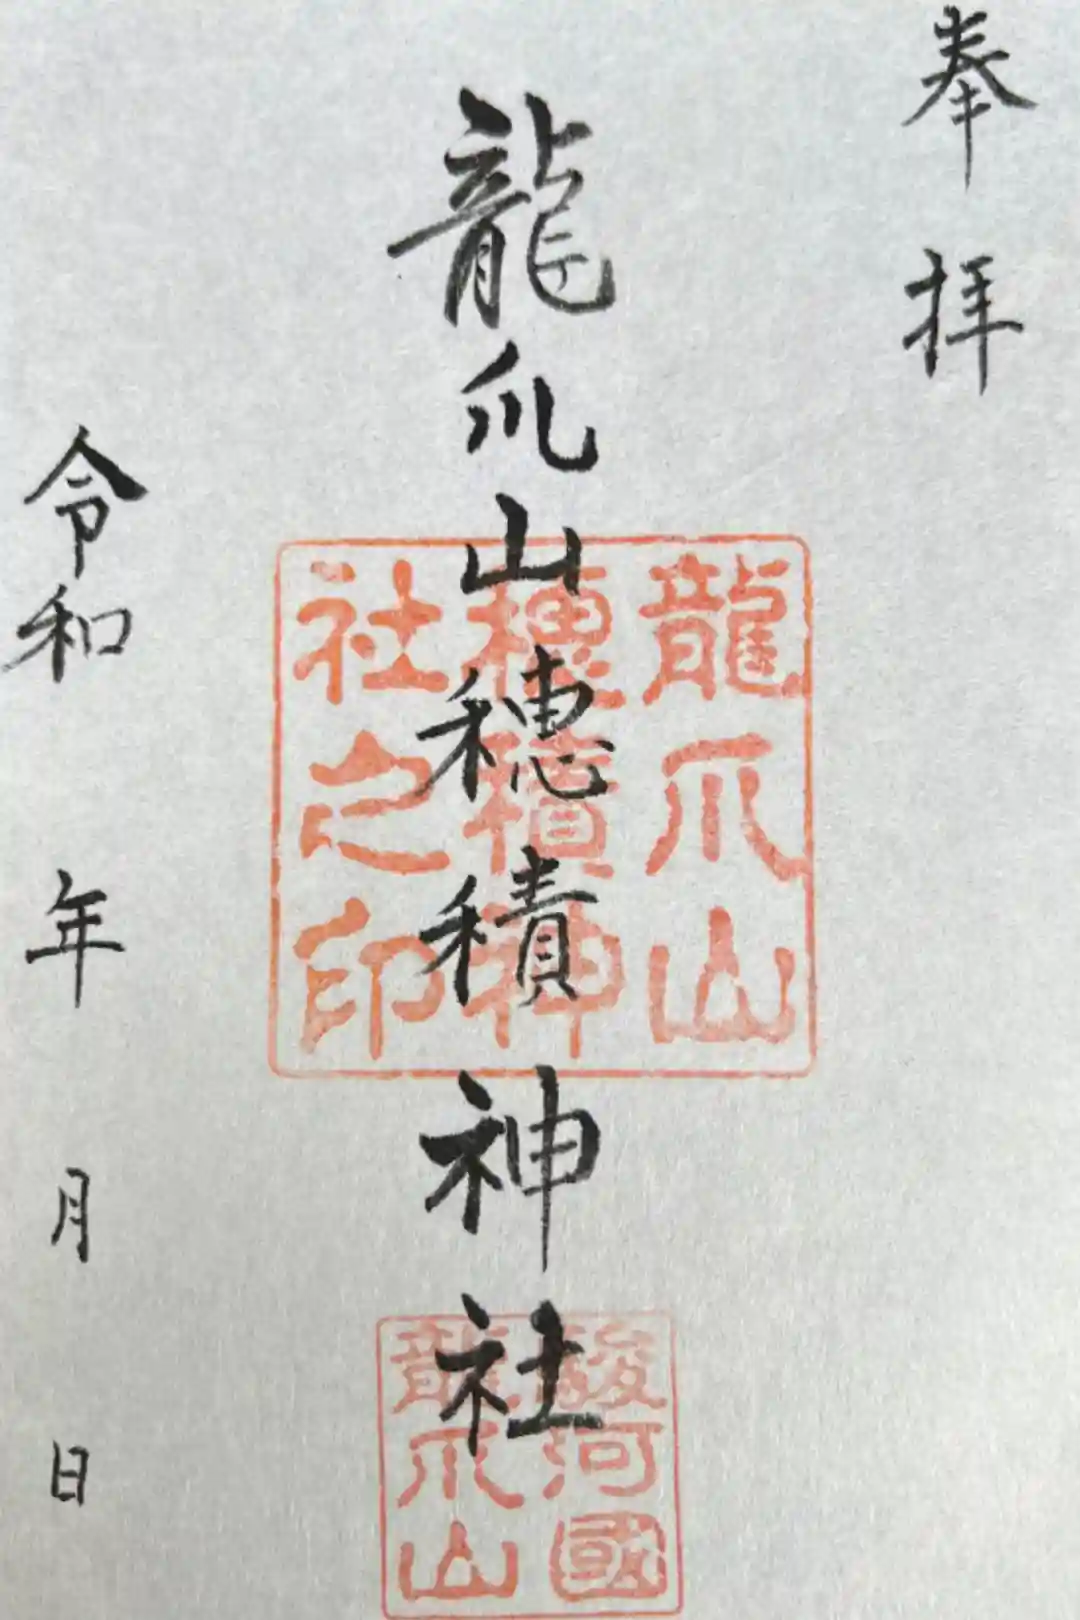 奉拝
龍爪山穂積神社
令和 年 月 日
龍爪山
穂積神
社之印
駿河國
龍爪山